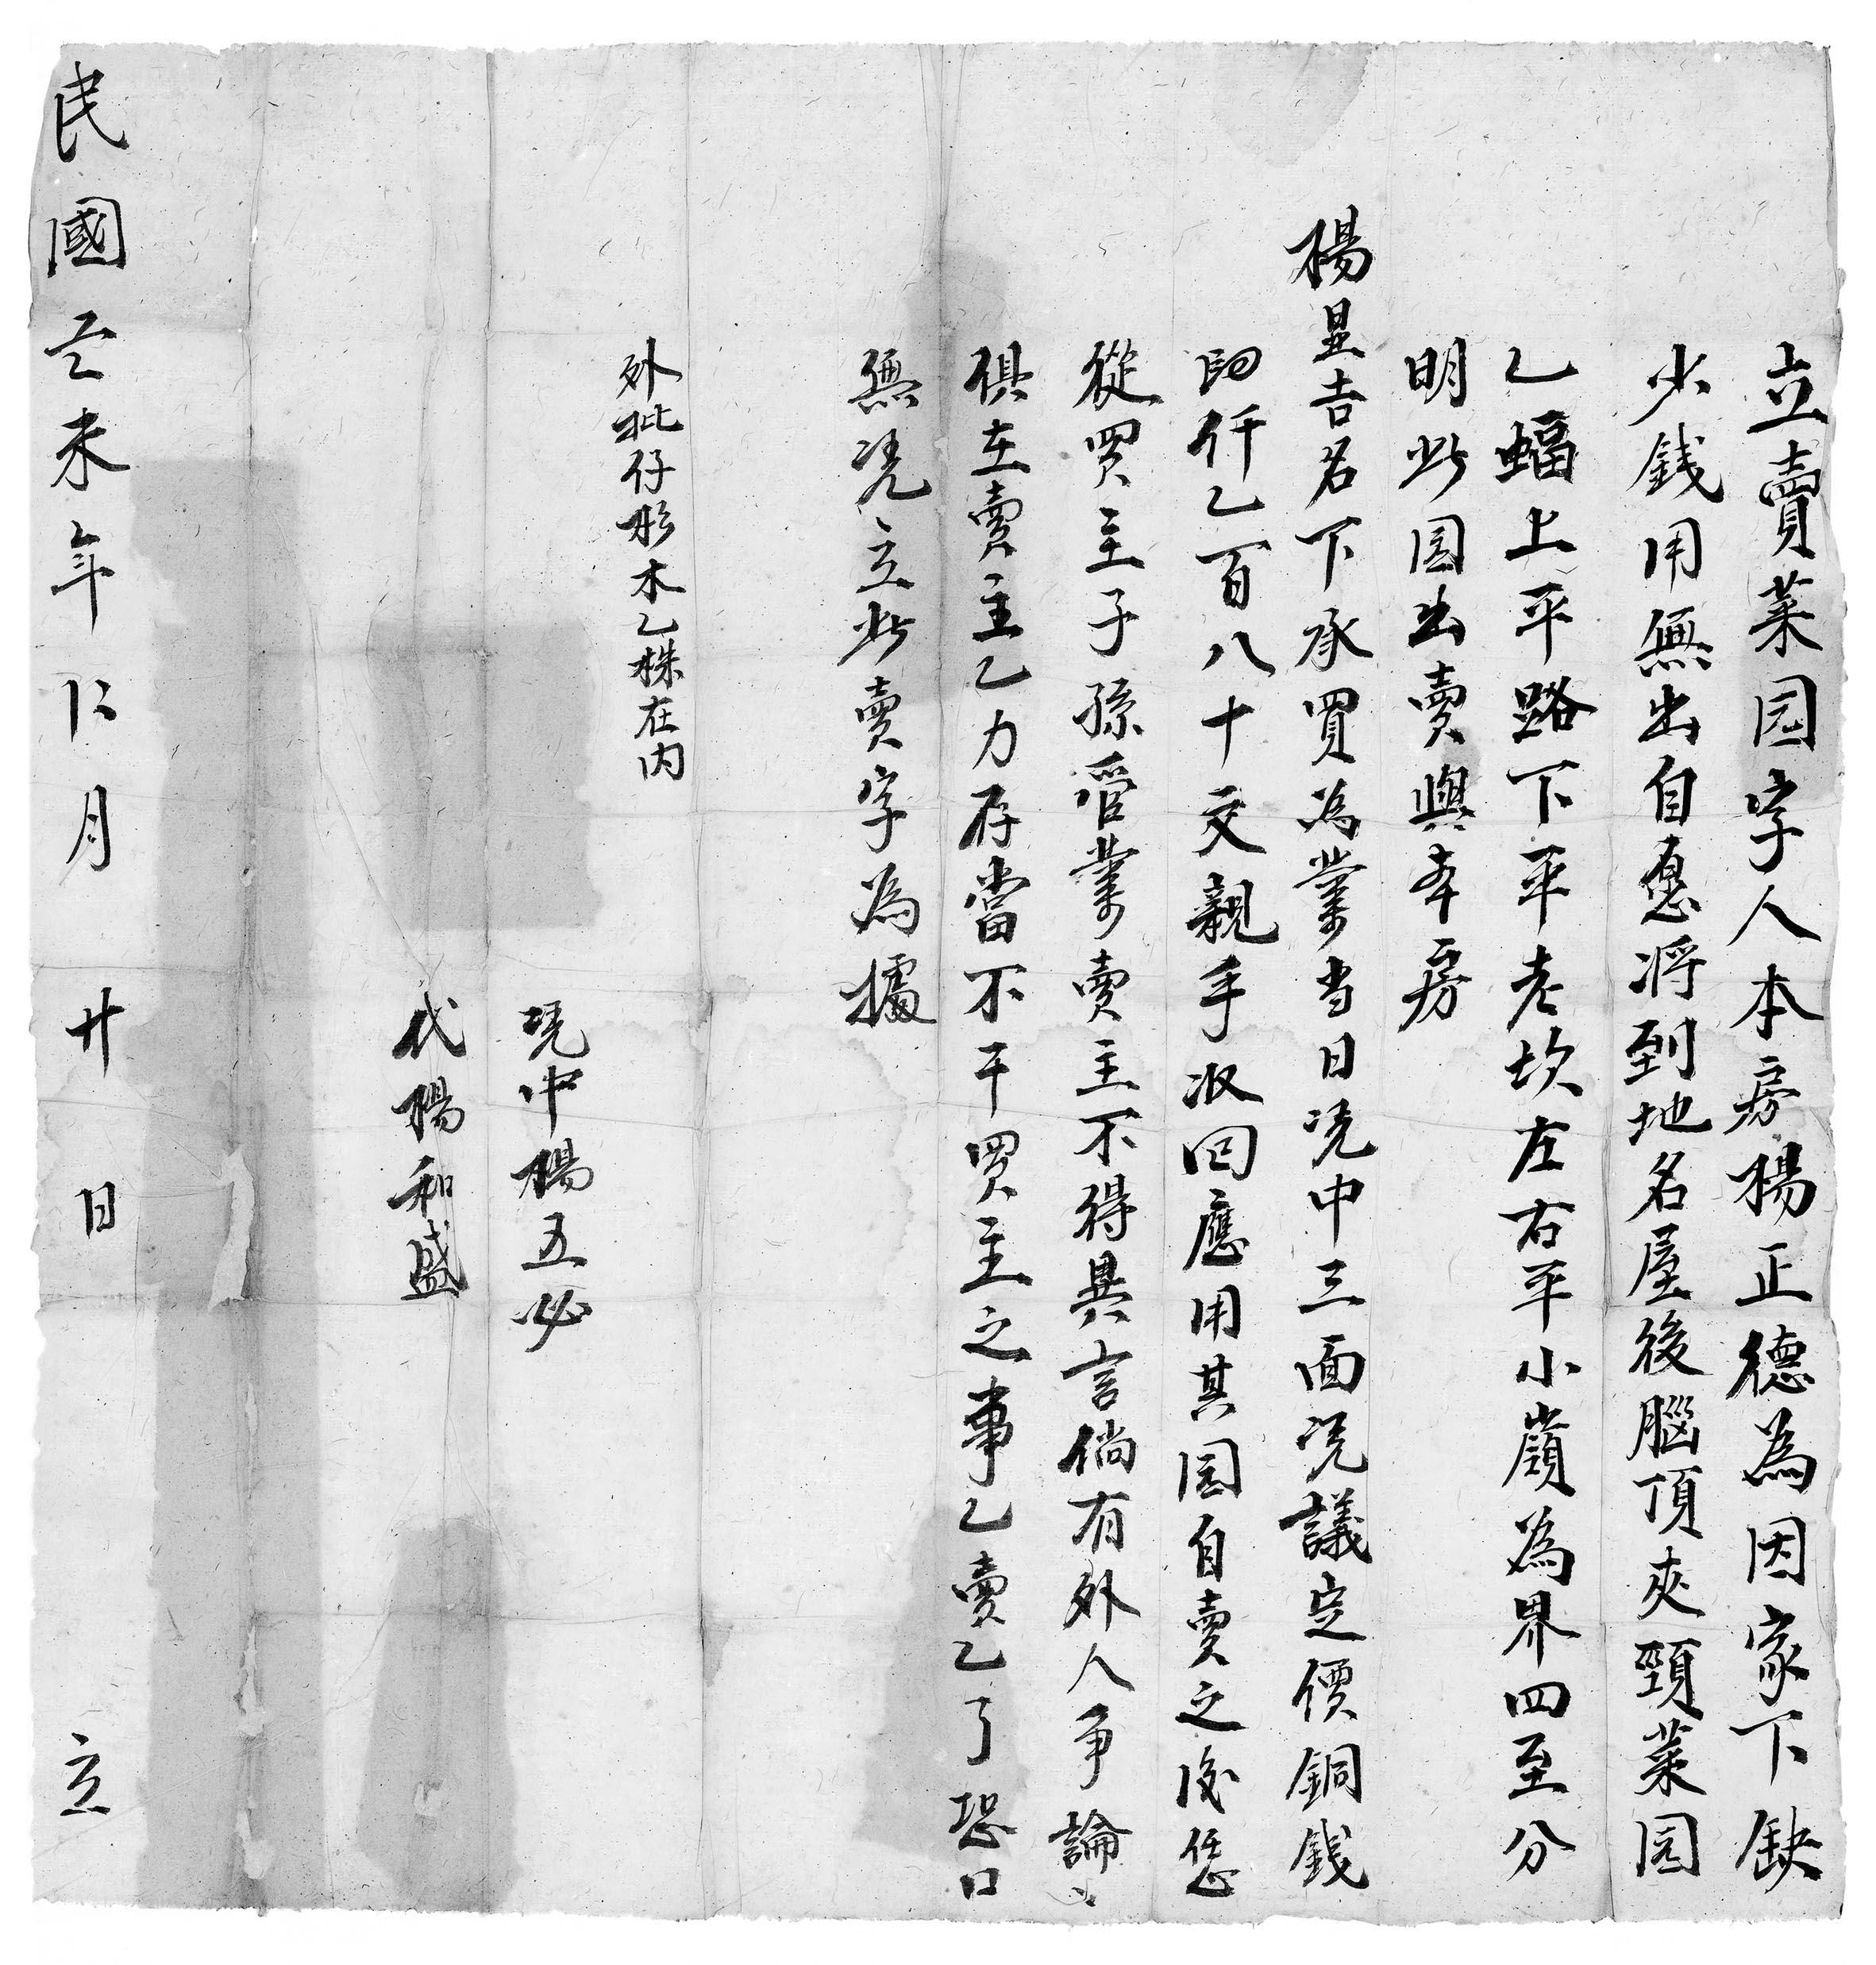 立賣菜园字人本房楊正德為因家下缺
少錢用無出自愿將到地名屋後腦頂夾頸菜园
乙幅上平路下平老坎左右平小嶺為界四至分
明此园出賣與本房
楊显吉名下承買為業当日凴中三面凴議定價銅錢
四仟乙百八十文親手收回應用其园自賣之後恁
從買主子孫管業賣主不得異言倘有外人爭論〻
俱在賣主乙力存當不干買主之事乙賣乙了恐口
無凴立此賣字為據
外批仔杉木乙株在内
凴中楊五必
代楊和盛
民國乙未年仁月廿日立